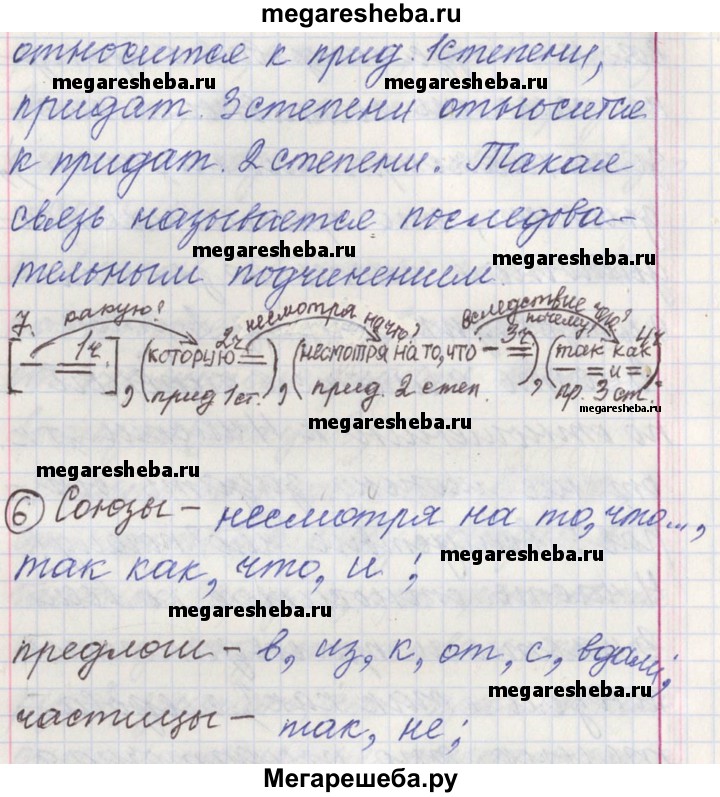 megaresheba.ru
относится к прид. 1степени,
megaresheba.ru megaresheba.ru
придат. 3степени относится
к придат. 2 степени. Такая
связь называется последова-
megaresheba.ru
тельным подчинением.
7. какую? несмотря на что? вследствие чего? почему?
megaresheba.ru
[– = 1ч.], (которую = 2ч.), (несмотря на то, что – = 3ч.), (так как – = и = 4ч.)
прид 1 ст. прид. 2 степ. пр. 3 ст.
megaresheba.ru megaresheba.ru
megaresheba.ru
6 Союзы – несмотря на то, что...,
так как, что, и;
megaresheba.ru
megaresheba.ru
предлоги – в, из, к, от, с, вдали;
megaresheba.ru
частицы – так, не;
Мегарешеба.ру